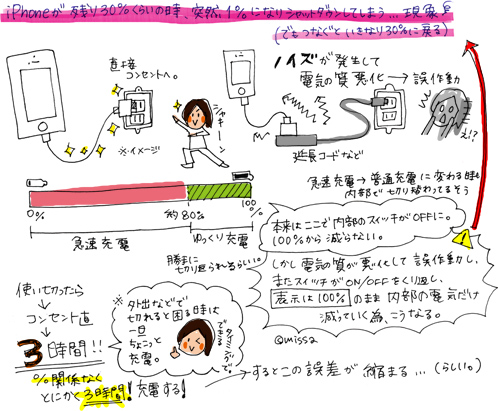 iPhoneが残り30%くらいの時、突然1%になりシャットダウンしてしまう…現象
(でもつなぐといきなり30%に戻る)
直接
コンセントへ。
※イメージ
シャキーン
ノイズが発生して
電気の質悪化→誤作動
延長コードなど
え!?
急速充電→普通充電に変わる時も
内部で切り替わってるそう
0%
約80%
100%
急速充電
ゆっくり充電
勝手に
切り返られるらしい。
本来はここで内部のスイッチがOFFに。
100%から減らない。
しかし電気の質が悪化して誤作動し、
またスイッチがON/OFFをくり返し、
表示は100%のまま内部の電気だけ
減っていく為、こうなる。
©missa
使い切ったら
↓
コンセント直
↓
3時間!!
%関係なく
とにかく3時間!充電する!
※外出などで
切れると困る時は
一旦
ちょっと
充電。
できる
タイミングで
→するとこの誤差が縮まる…(らしい。)